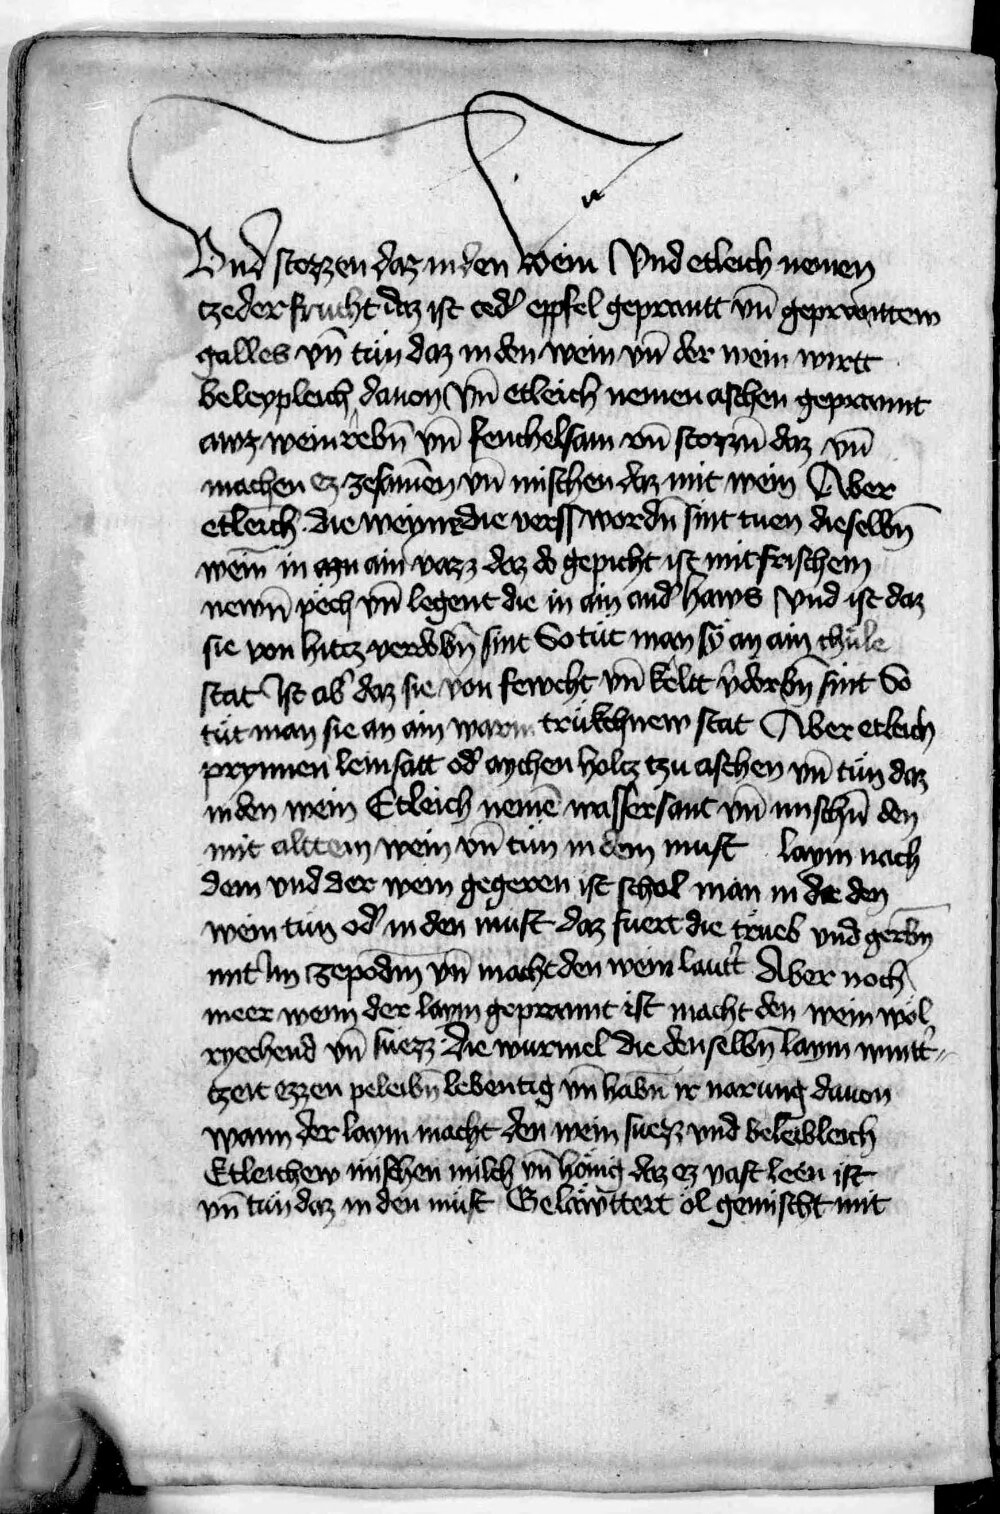 Vnd stozzen daz in den wein Vnd etleich nemen
tzederfrucht daz ist ced' eppfel geprantt vn̄ geprantten
galles vn̄ tün daz in den wein vn̄ der wein wirtt
beleypleich dauon Vn̄ etleich nemen aschen geprannt
awz weinrebn̄ vn̄ fenchelsam vn̄ stozzn̄ daz vn̄
machen ez zesamēn vn̄ mischen daz mit wein Aber
etleich die weynn die wordn̄ sint tuen dieselbn̄
wein in ain vazz daz do gepicht ist mit frischem
newn̄ pech vn̄ legent die in ain and' haws Vnd ist daz
sie von hitz verdorbn̄ sint So tüt man sy an ain chüle
stat Ist ab' daz sie von fewcht vn̄ keltt v'dorbn̄ sint So
tüt man sie an ain warm trükchnew stat Aber etleich
prynnen leinsatt od' aychen holtz tzu aschen vn̄ tün daz
in den wein Etleich nemē wassersant vn̄ mischn̄ den
mit alttem wein vn̄ tün in dem must laym nach
dem vnd der wein gegeren ist schol man in den
wein tün od' in den must daz fuert die trüeb vnd gerbn̄
mit im zepodm̄ vn̄ macht den wein laut'r Aber noch
meer wenn der laym geprannt ist macht den wein wol
ryechend vn̄ süezz die würmel die denselbn̄ laym wintt'r
tzeit ezzen peleibn̄ lebentig vn̄ habn̄ ir narung dauon
wann der laym macht den wein suezz vnd beleibleich
Etleichew mischen milch vn̄ hönig daz ez vast ist
vn̄ tün daz in den must Gelawttert öl gemischt mit